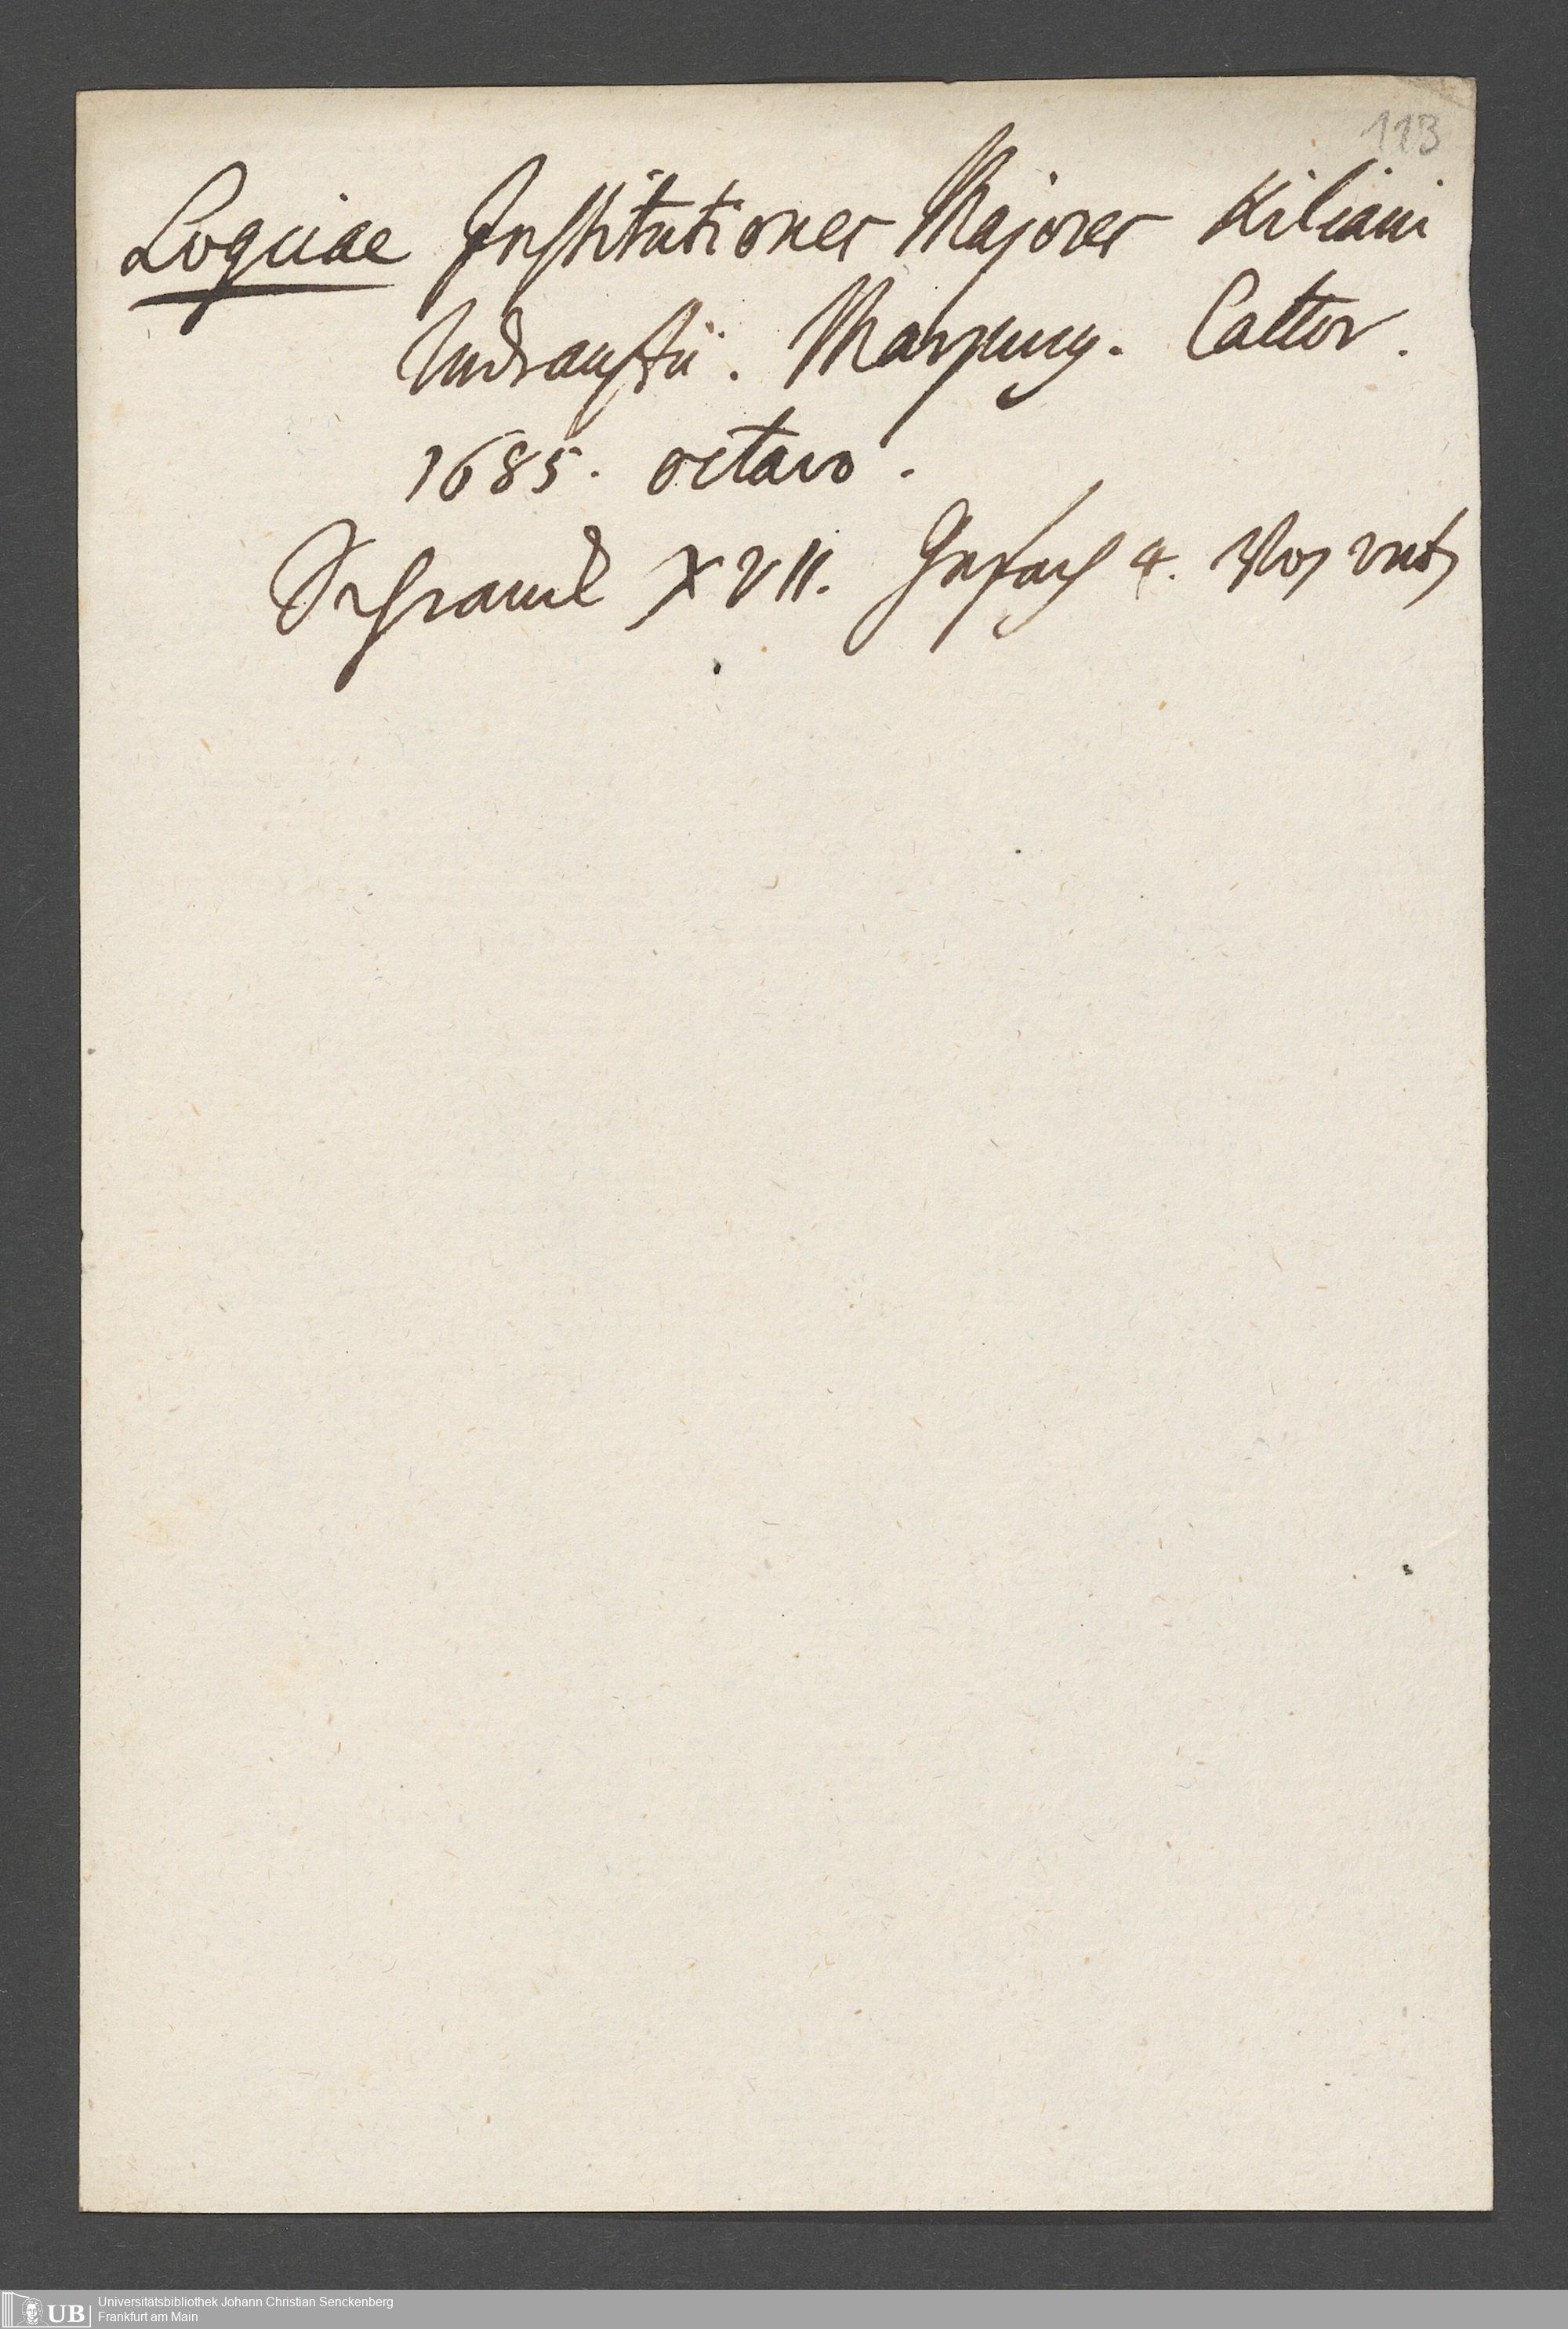 113
Logicae Institutiones Majores Kiliani
Rudrauffii. Marpurg. Cattor.
1685. octavo.
Schranck XVII. Gefach 4. Nos
Universitätsbibliothek Johann Christian Senckenberg
Frankfurt am Main
UB